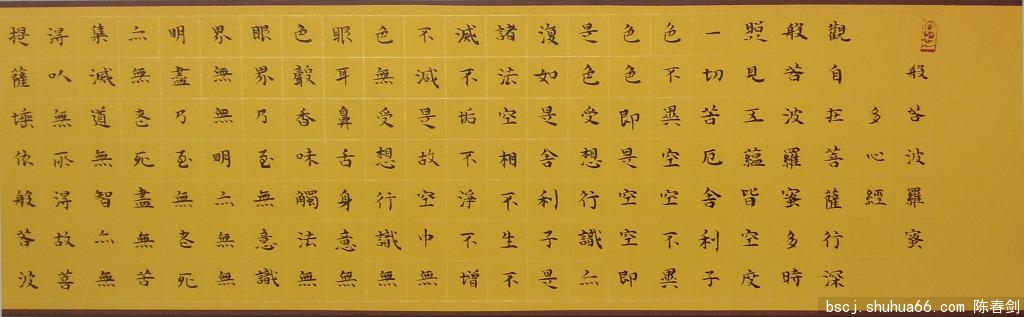 般若波羅蜜
多心經
觀自在菩薩行深
般若波羅蜜多時
照見五蘊皆空度
一切苦厄舍利子
色不異空空不異
色色即是空空即
是色受想行識亦
復如是舍利子是
諸法空相不生不
滅不垢不淨不增
不減是故空中無
色無受想行識無
眼耳鼻舌身意無
色聲香味觸法無
眼界乃至無意識
界無無明亦無無
明盡乃至無老死
亦無老死盡無苦
集滅道無智亦無
得以無所得故菩
提薩埵依般若波
bscj.shuhua66.com 陈春剑